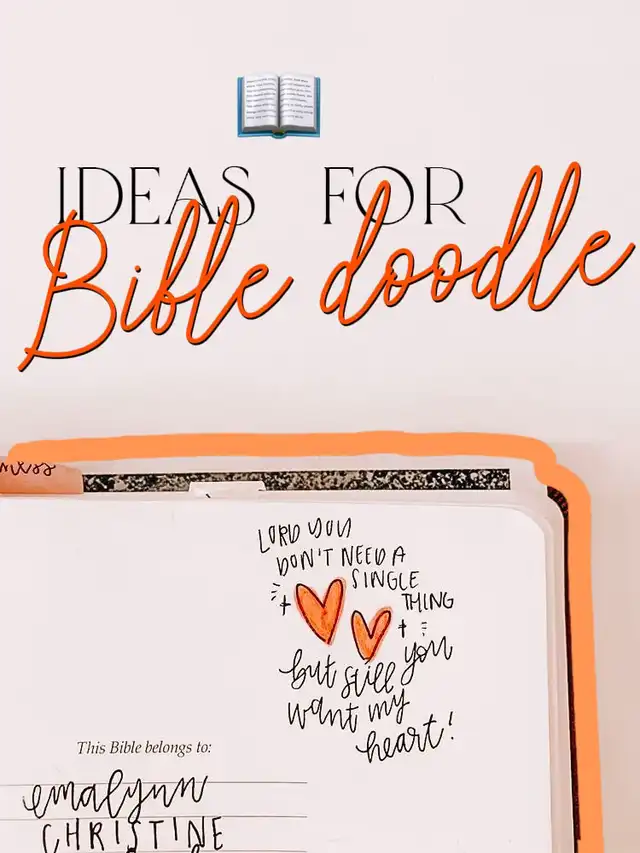 IDEAS FOR
Bible doodle
ness
LORD YOU
DON'T NEED A
SINGLE
THING
but still you
want my
heart!
This Bible belongs to:
emalynn
CHRISTINE